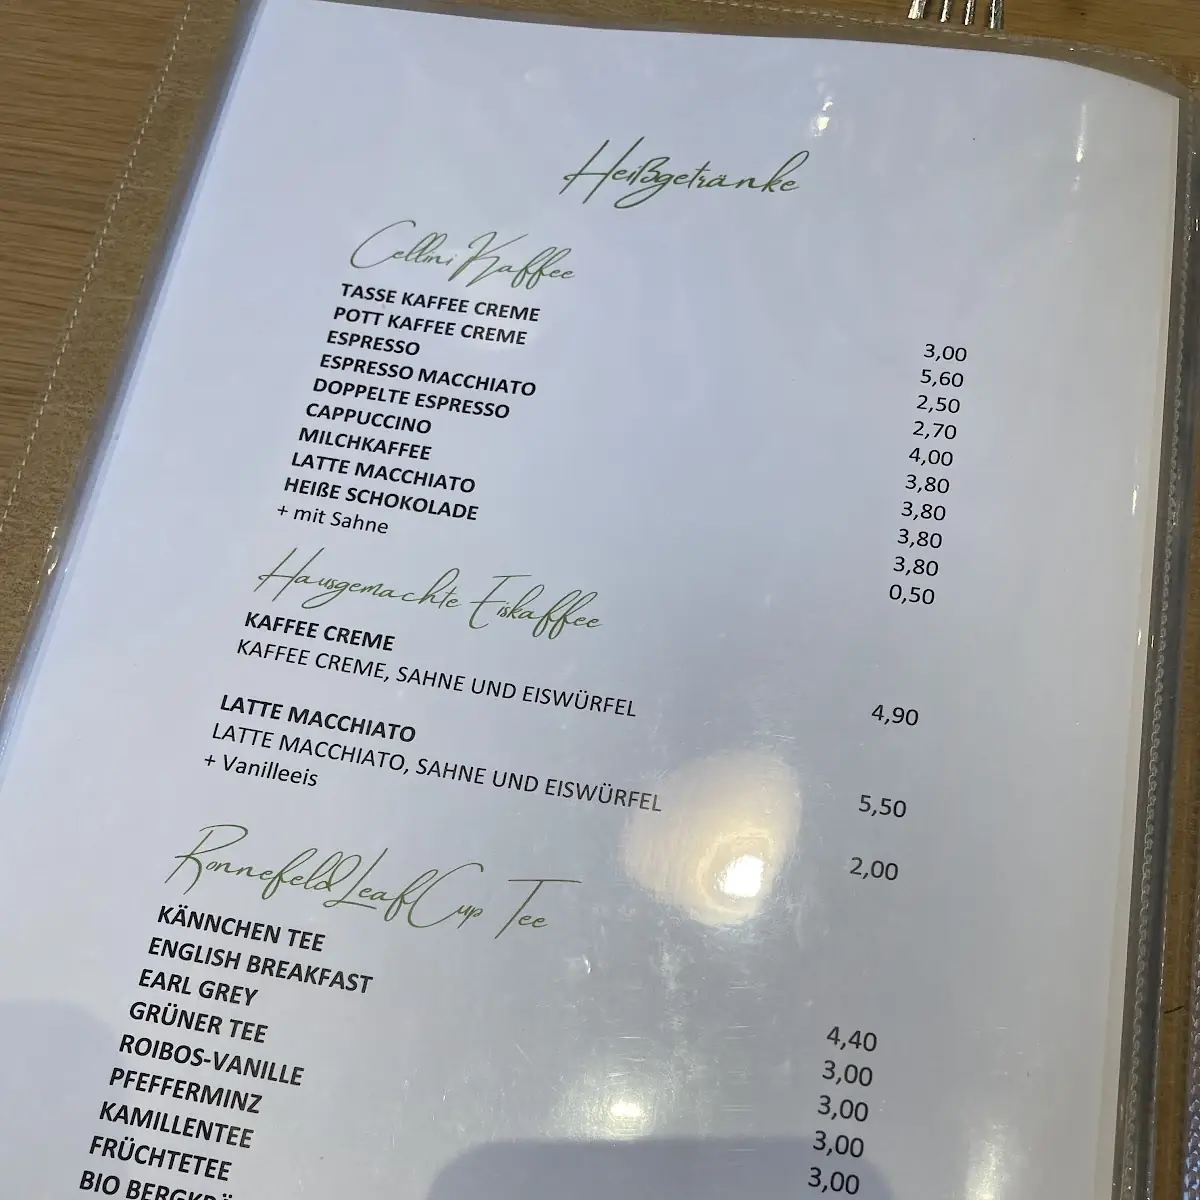 Heißgetränke
Cellini Kaffee
TASSE KAFFEE CREME 3,00
POTT KAFFEE CREME 5,60
ESPRESSO 2,50
ESPRESSO MACCHIATO 2,70
DOPPELTE ESPRESSO 4,00
CAPPUCCINO 3,80
MILCHKAFFEE 3,80
LATTE MACCHIATO 3,80
HEIßE SCHOKOLADE 3,80
+ mit Sahne 0,50
Hausgemachte Eiskaffee
KAFFEE CREME
KAFFEE CREME, SAHNE UND EISWÜRFEL 4,90
LATTE MACCHIATO
LATTE MACCHIATO, SAHNE UND EISWÜRFEL 5,50
+ Vanilleeis 2,00
Ronnefeld Leaf Cup Tee
KÄNNCHEN TEE 4,40
ENGLISH BREAKFAST 3,00
EARL GREY 3,00
GRÜNER TEE 3,00
ROIBOS-VANILLE 3,00
PFEFFERMINZ
KAMILLENTEE
FRÜCHTETEE
BIO